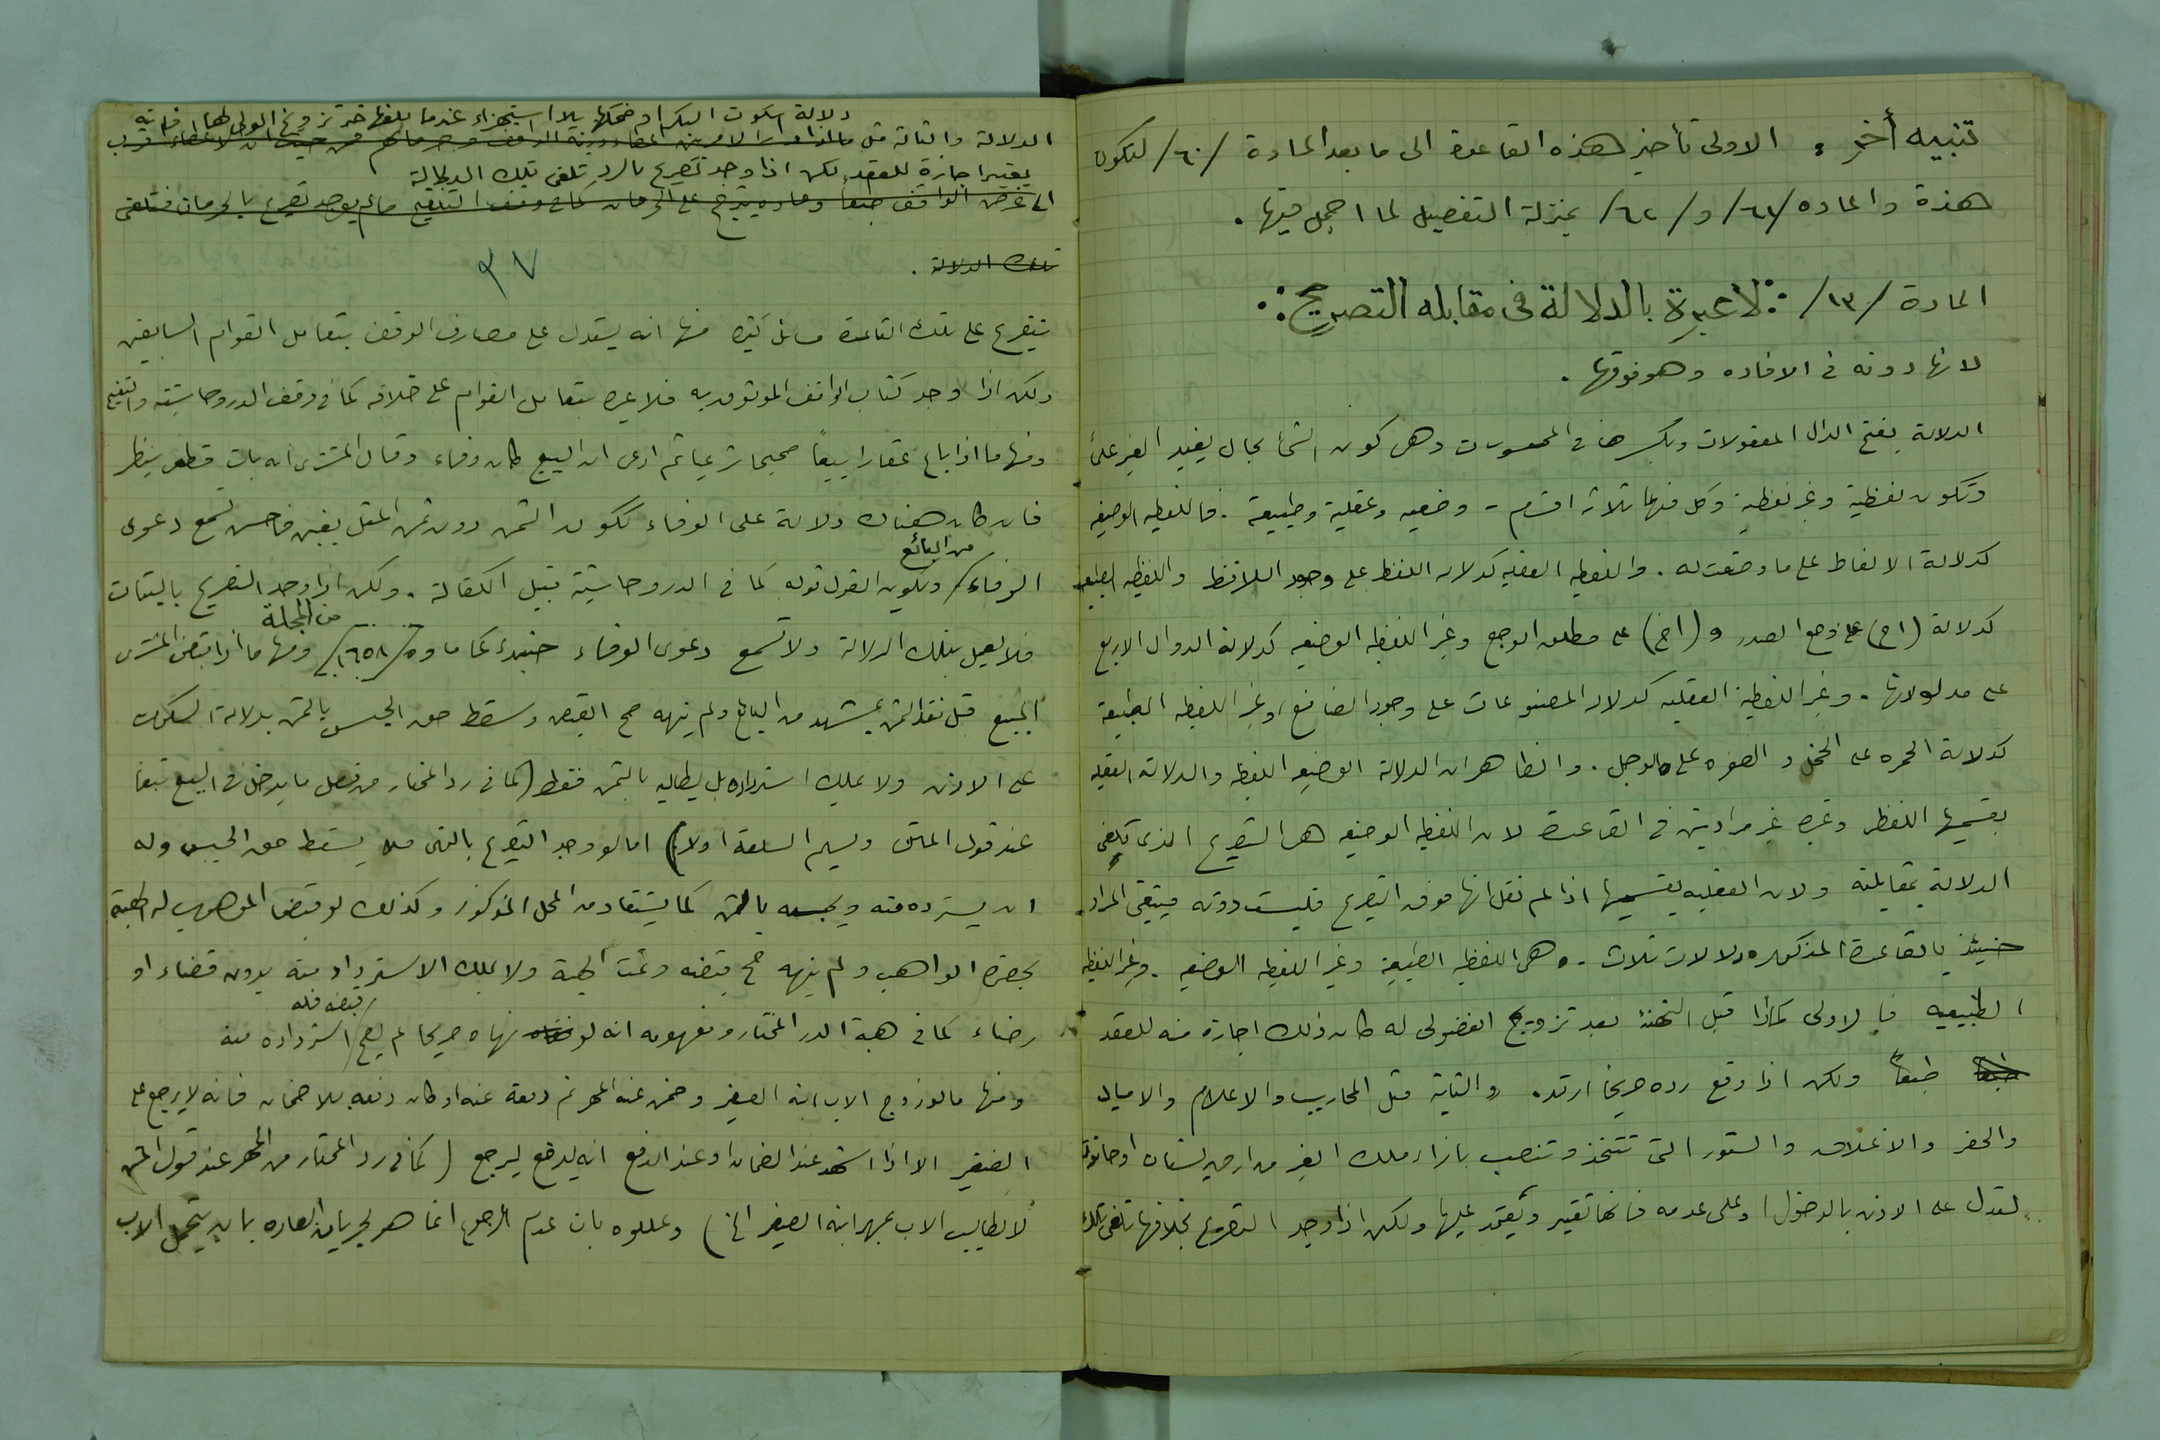 تنبيه أخر : الاولى تأخير هذه القاعدة الى ما بعد المادة /٦٠/ لتكون
هذة والماده /٦١/ و /٦٢/ بمنزلة التفصيل لما اجمل فيها .
المادة /١٣/ : لاعبرة بالدلالة فى مقابله التصريح :
لانها دونه في الافاده وهو فوقها .
الدلالة بفتح الدال المعقولات وبكسرها في المحسوسات وهى كون الشئ بحال يفيد الغير علماً
وتكون لفظية وغير لفظية وكل منهما ثلاثة اقسام - وضعيه وعقلية وطبيعة . فاللفظيه الوضعيه
كدلالة الالفاظ على ما وضعت له . واللفظيه العقليه كدلالة اللفظ على وجود اللافظ واللفظيه الطبيعيه
كدلالة (اح) على وجع الصدر و (اخ) على مطلق الوجع وغير اللفظيه الوضعيه كدلالة الدوال الاربع
على مدلولاتها . وغير اللفظية العقليه كدلالة المصنوعات على وجود الصانع ، وغير اللفظيه الطبيعية
كدلالة الحمره على الخجل و الصفره على الوجل . والظاهر ان الدلالة الوضعيه اللفظيه والدلالة العقليه
بقسميها اللفظى وغيره غير مرادتين في القاعدة لان اللفظيه الوضعيه هى التصريح الذى تلغى
الدلالة بمقابلته ولان العقليه بقسميها اذا لم نقل انها فوق التصريح فليست دونه فيبقى المراد
حينئذ بالقاعدة المذكوره دلالات ثلاث - وهى اللفظيه الطبيعية وغير اللفظيه الوضعيه . وغير اللفظيه
الطبيعيه فالاولى كما اذا قبل التهنئة بعد تزويج الفضولى له كان ذلك اجازة منه للعقد
طبعاً ولكن اذا وقع رده صريحا ارتد . والثانية مثل المحاريب والاعلام والاميال
والحفر والاغلاق والستور التى تتخذ وتنصب بازاء ملك الغير من ارض او بستان او حانوت
لتدل على الاذن بالدخول او على عدمه فانها تعتبر ويعتمد عليها ولكن اذا وجد التصريح بخلافها تلغى تلك
دلالة سكوت البكر او ضحكها بلا استهزاء عندما بلغها خبر تزويج الولى لها فانه
الدلالة والثالثة مثل
يعتبر اجازة للعقد ولكن اذا وجد تصريح بالرد تلغى تلك الدلالة
تلك الدلالة .
٣٧
يتفرع على تلك القاعدة مسائل كثيره منها انه يستدل على مصارف الوقف بتعامل القوام السابقين
ولكن اذا وجد كتاب الواقف الموثوق به فلا عبره بتعامل القوام على خلافه كما فى وقف الدر وحاشيته والتنقيح
ومنها ما اذا باع عقارا بيعاً صحيحا شرعيا ثم ادعى ان البيع كان وفاء وقال المشترى انه بات قطعى ينظر
فان كان هناك دلالة على الوفاء ككون الثمن دون ثمن المثل بغبن فاحش تسمع دعوى
الوفاء من البائع ويكون القول قوله كما فى الدر وحاشيته قبيل الكفالة . ولكن اذا وجد التصريح بالبتات
فلا يعمل بتلك الدلالة ولا تسمع دعوى الوفاء حينئذ كما في م /١٦٥٨/ من المجلة ومنها ما اذا قبض المشترى
المبيع قبل نقد الثمن بمشهد من البائع ولم ينهه صح القبض وسقط حق الحبس بالثمن بدلالة السكوت
على الاذن ولا يملك استرداده بل يطالبه بالثمن فقط (كما فى رد المختار من فصل ما يدخل فى البيع تبعا
عند قول المتن ويسلم السلعة اولا) اما لو وجد التصريح بالنهى فلا يسقط حق الحبس وله
ان يسترده منه ويحبسه بالثمن كما يستفاد من المحل المذكور وكذلك لو قبض الموهوب له الهبة
بحضرة الواهب ولم ينهه صح قبضه وتمت الهبة ولا يملك الاسترداد منه بدون قضاء او
رضاء كما فى هبة الدر المختار ومفهومه انه لو نهاه صريحا لم يصح قبضه فله استرداده منه
ومنها ما لو زوج الاب ابنه الصغير وضمن عنه المهر ثم دفعه عنه او كان دفعه بلا ضمان فانه لا يرجع على
الصغير الا اذا اشهد عند الضمان او عند الدفع انه يدفع ليرجع (كما فى رد المحتار من المهر عند قول المتن
لا يطالب الاب بمهر ابنه الصغير الخ) وعللوه بان عدم الرجوع انما هو لجريان العاده بان يتحمل الاب